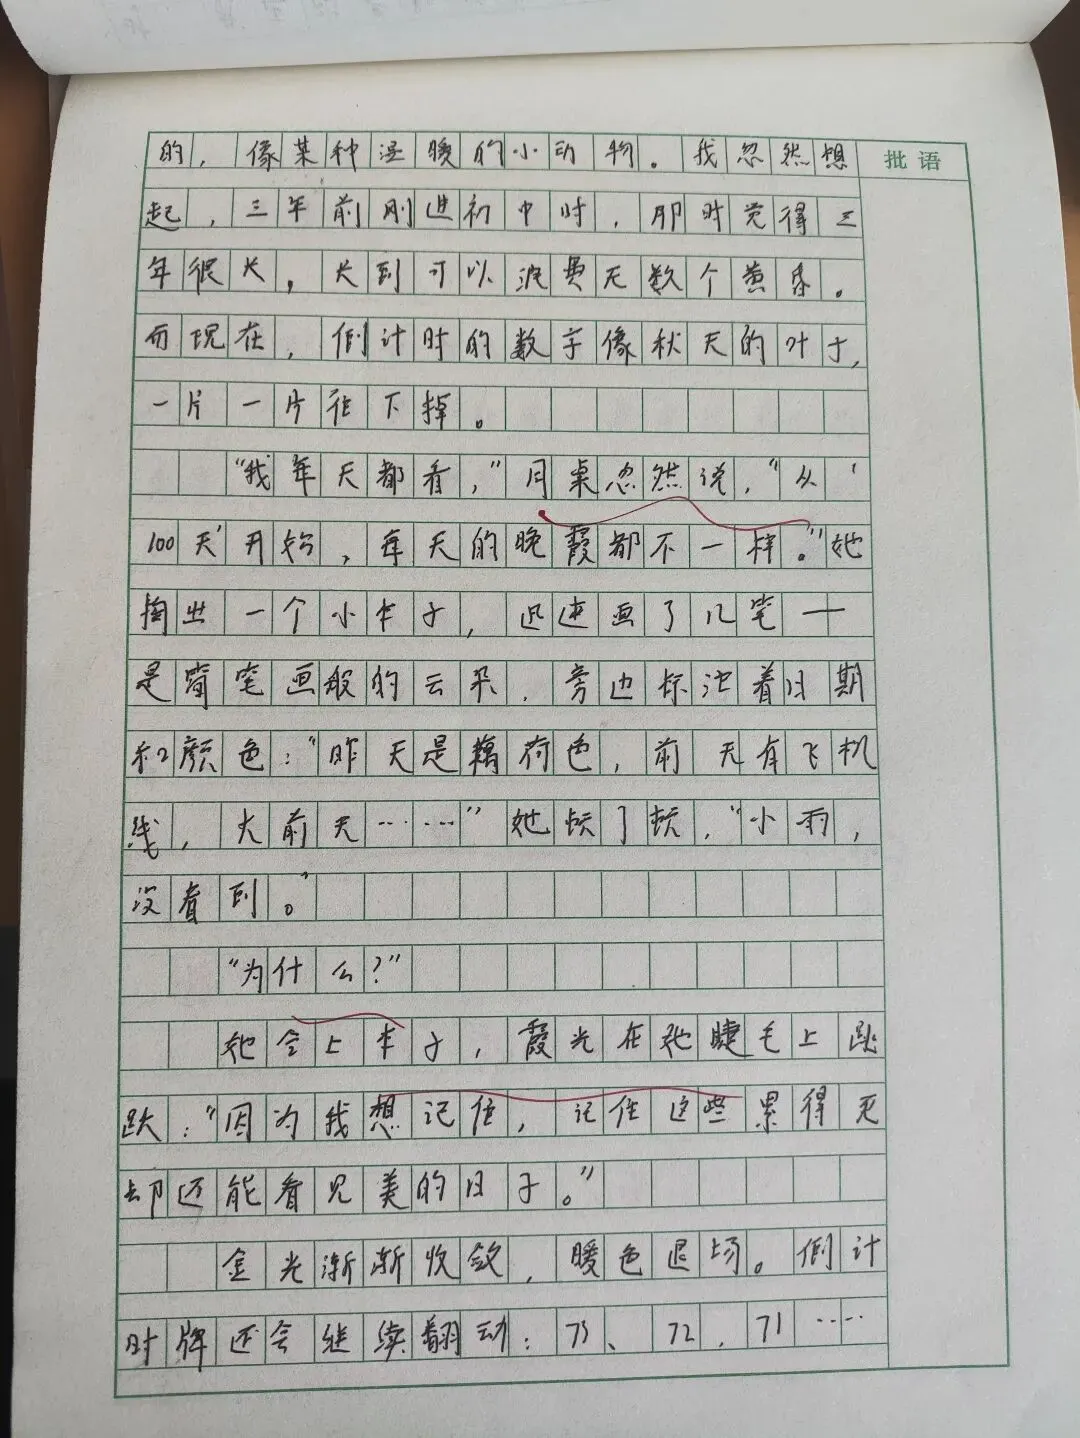 的，像某种湿暖的小动物。我忽然想
批语
起，三年前刚进初中时，那时觉得三
年很长，长到可以浪费无数个黄昏。
而现在，倒计时的数字像秋天的叶子，
一片一片往下掉。
“我每天都看，”同桌忽然说，“从‘
100天’开始，每天的晚霞都不一样。”她
掏出一个小本子，迅速画了几笔一
是简笔画般的云朵，旁边标注着日期
和颜色：“昨天是藕荷色，前天有飞机
线，大前天……”她顿了顿，“小雨，
没看到。”
“为什么？”
她合上本子，霞光在她睫毛上跳
跃：“因为我想记住，记住这些累得死
却还能看见美的日子。”
金光渐渐收敛，暖色退场。倒计
时牌还会继续翻动：73、72，71……